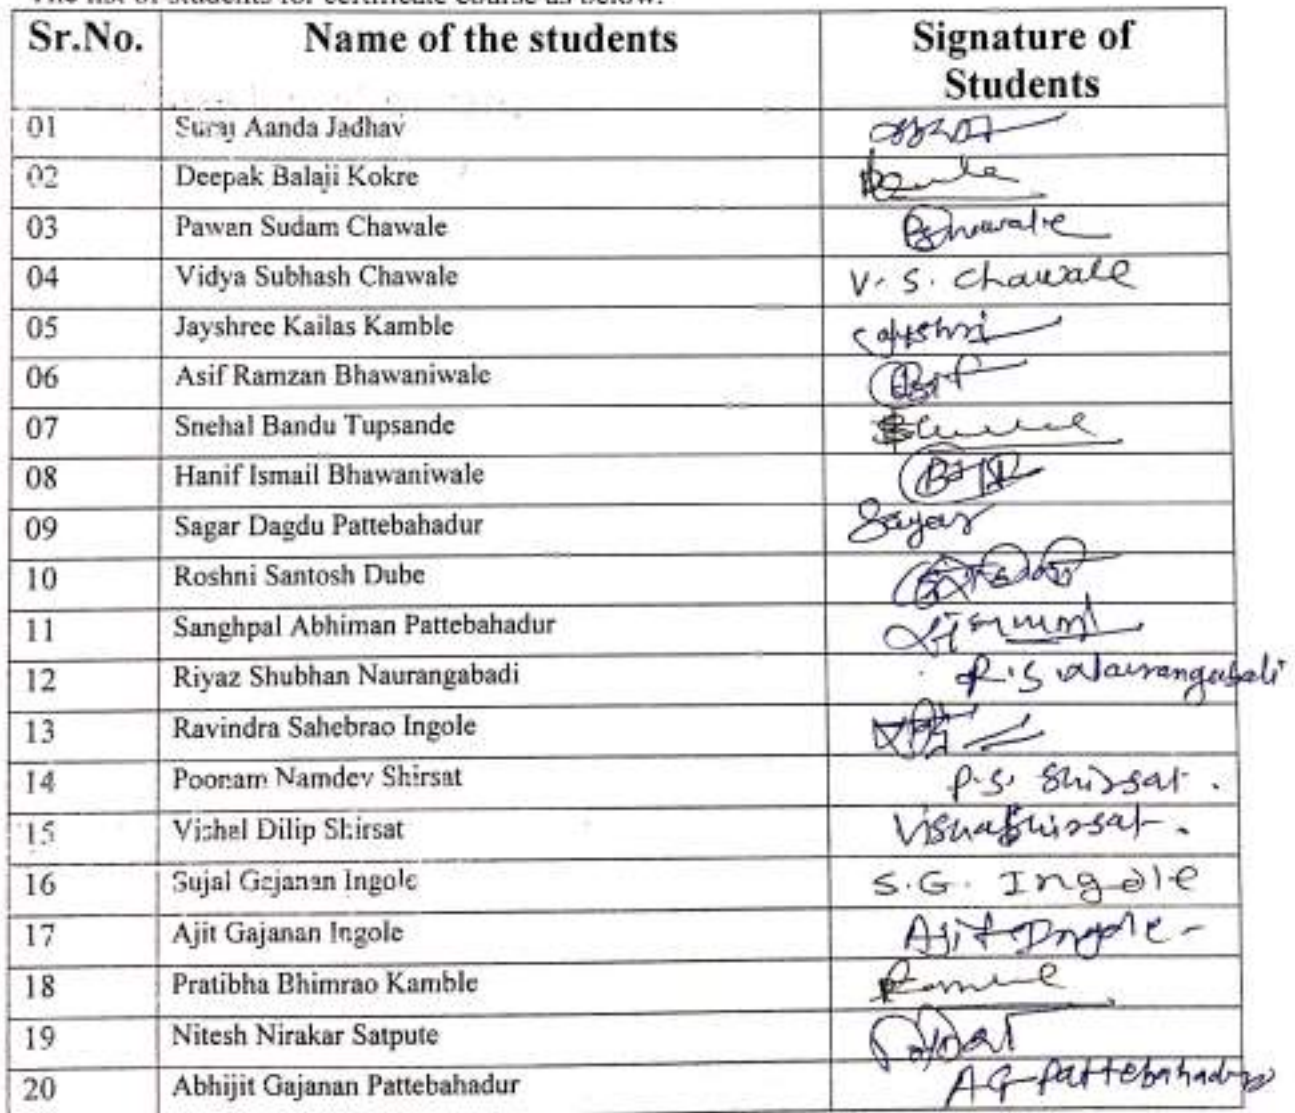 The list of students for certificate course as below.
Sr.No. Name of the students Signature of Students
01 Suraj Aanda Jadhav
02 Deepak Balaji Kokre
03 Pawan Sudam Chawale
04 Vidya Subhash Chawale V. S. Chawale
05 Jayshree Kailas Kamble
06 Asif Ramzan Bhawaniwale
07 Snehal Bandu Tupsande
08 Hanif Ismail Bhawaniwale
09 Sagar Dagdu Pattebahadur Sagar
10 Roshni Santosh Dube
11 Sanghpal Abhiman Pattebahadur
12 Riyaz Shubhan Naurangabadi R.S Naurangabadi
13 Ravindra Sahebrao Ingole
14 Poonam Namdev Shirsat P.S. Shirsat.
15 Vishal Dilip Shirsat
16 Sujal Gajanan Ingole S.G. Ingole
17 Ajit Gajanan Ingole Ajit Ingole
18 Pratibha Bhimrao Kamble
19 Nitesh Nirakar Satpute
20 Abhijit Gajanan Pattebahadur AG Pattebahadur